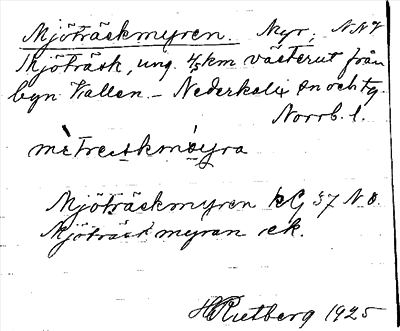 Mjöträskmyren. Myr, NNV
Mjöträsk, ung. 4/5 km västerut från
byn Vallen. – Nederkalix sn och tg.
Norrb. l.
Mjöträskmyren kG 37 N O.
Mjöträskmyran ek.
HRietberg 1925